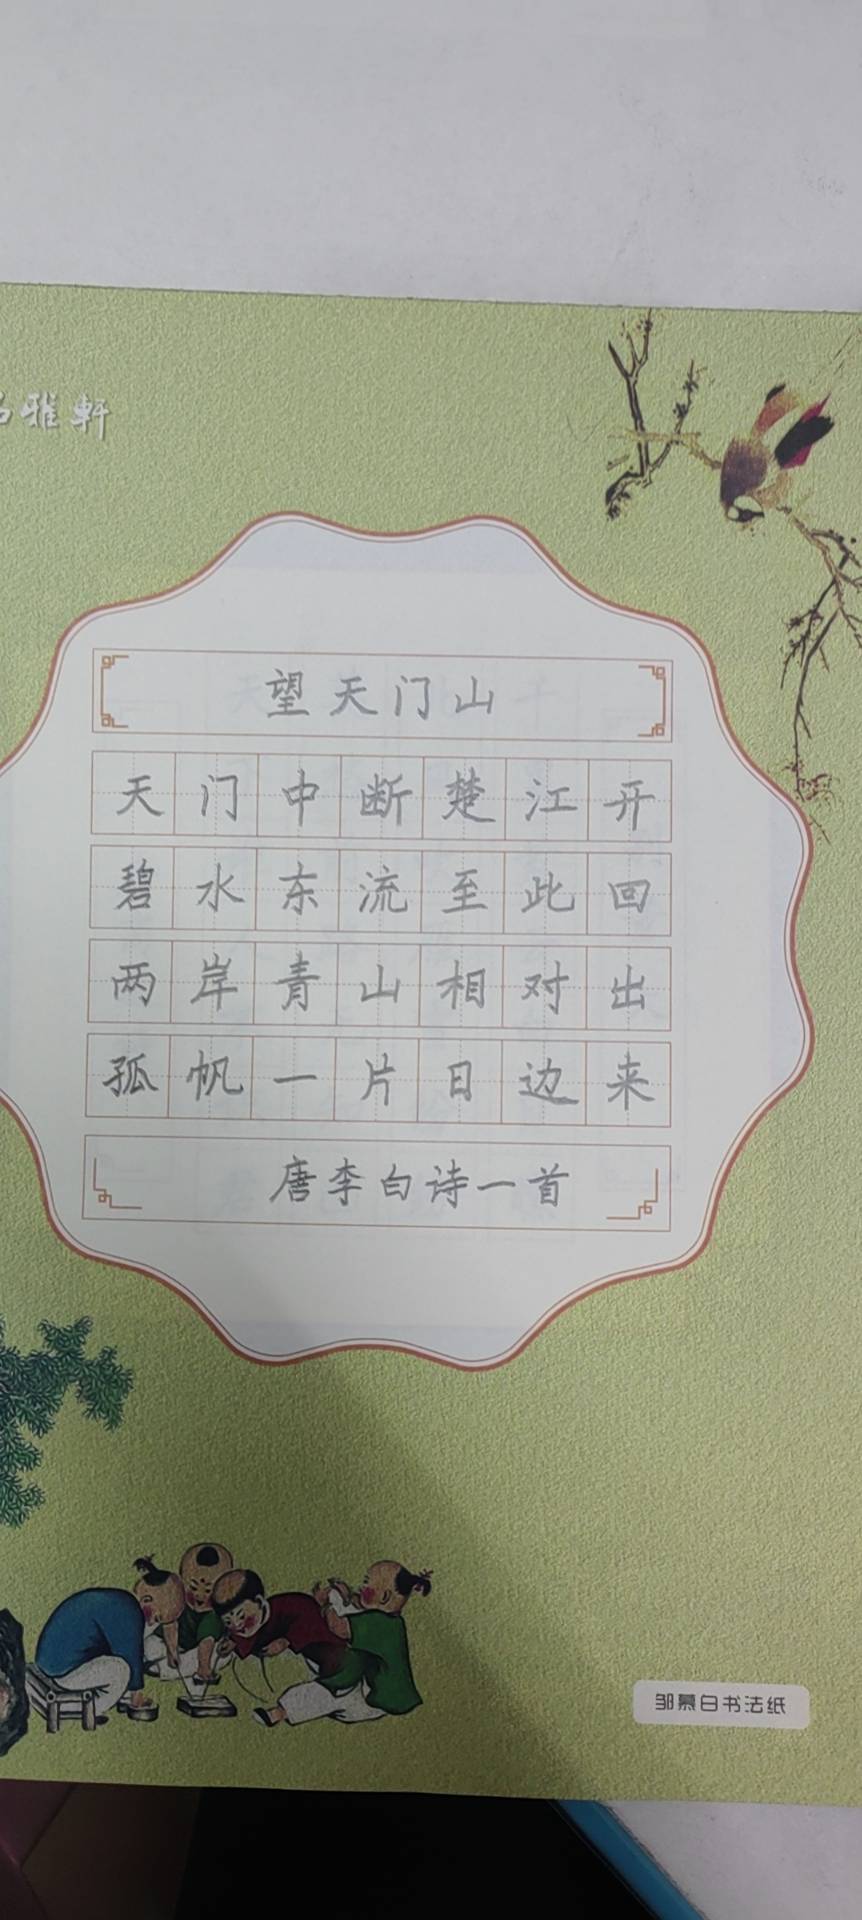 雅軒
望天门山
天门中断楚江开
碧水东流至此回
两岸青山相对出
孤帆一片日边来
唐李白诗一首
邹慕白书法纸